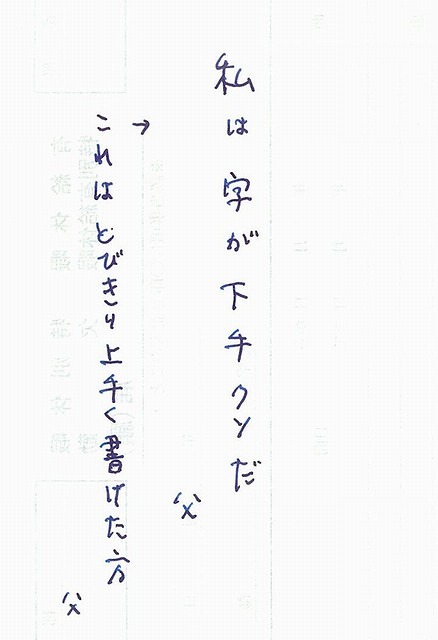 私は字が下手クソだ
父
→これはとびきり上手く書けた方
父